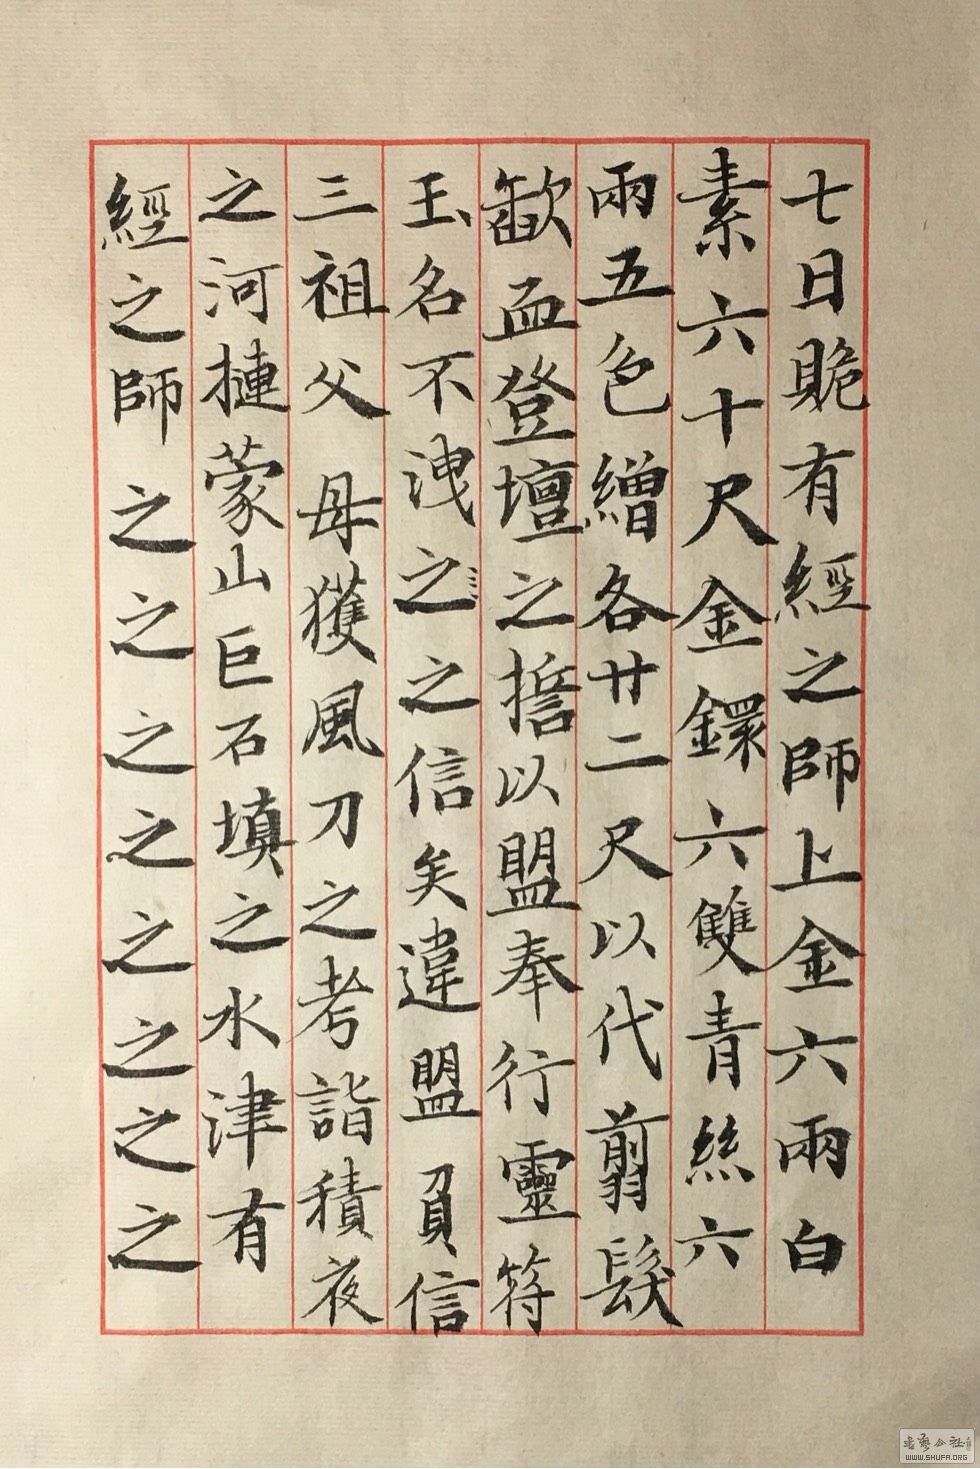 七日貹有經之師上金六兩白
素六十尺金鐶六雙青絲六
兩五色繒各廿二尺以代翦髮
歃血登壇之擔以盟奉行靈符
玉名不洩之之信矣違盟負信
三祖父母獲風刀之考詣積夜
之河摙蒙山巨石填之水津有
經之師之之之之之之之之
書法公社
WWW.SHUFA.ORG